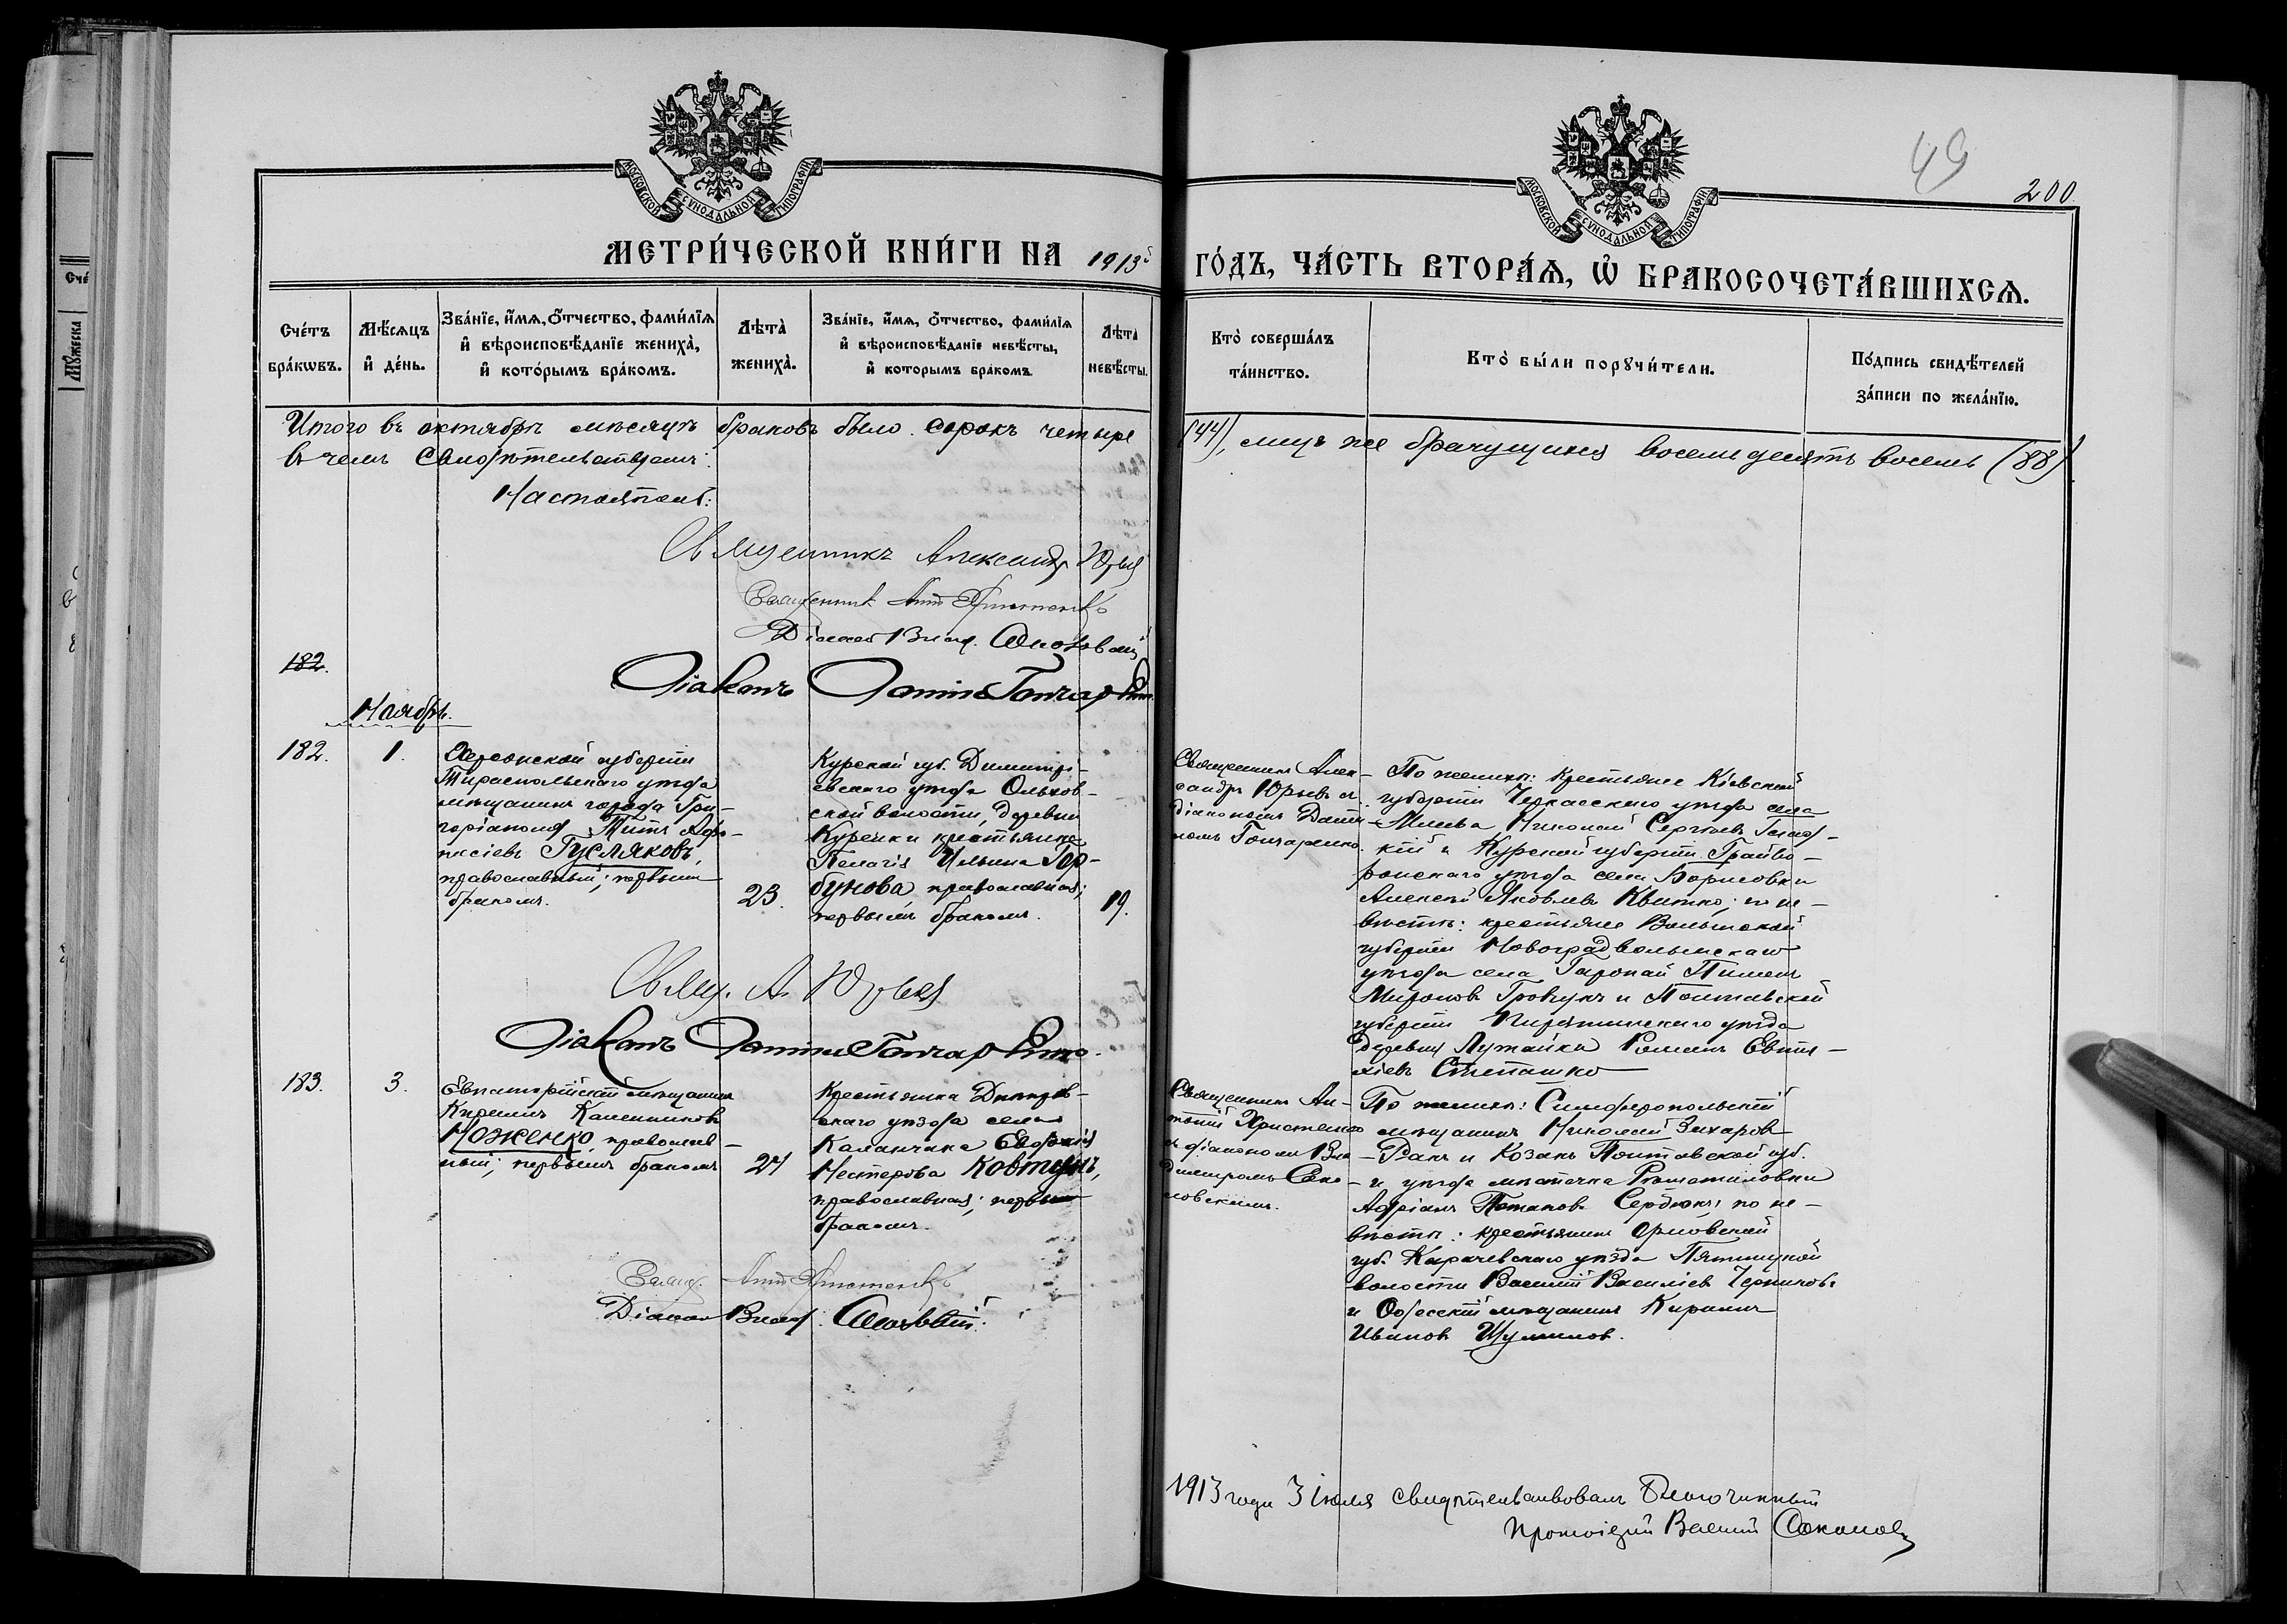 49
200
МОСКОВСКОЙ СУНОДАЛЬНОЙ ТИПОГРАФІИ
МОСКОВСКОЙ СУНОДАЛЬНОЙ ТИПОГРАФІИ
МЕТРИ́ЧЕСКОЙ КНИ́ГИ НА 1913й ГО́ДЪ, ЧА́СТЬ ВТОРА́Ѧ, Ѡ҆ БРАКОСОЧЕТА́ВШИХСѦ.
Сче́тъ бра́кѡвъ.
Мѣ́сѧцъ и҆ де́нь.
Зва́нїе, и҆́мѧ, ѻ҆́тчество, фами́лїѧ и҆ вѣроисповѣ́данїе жениха̀, и҆ кото́рымъ бра́комъ.
Лѣта̀ жениха̀.
Зва́нїе, и҆́мѧ, ѻ҆́тчество, фами́лїѧ и҆ вѣроисповѣ́данїе невѣ́сты, и҆ которымъ бра́комъ.
Лѣта̀ невѣ́сты.
Кто̀ соверша́лъ та́инство.
Кто̀ бы́ли порꙋчи́тели.
По́дпись свидѣ́телей за́писи по жела́нїю.
Итого въ октябрѣ мѣсяцѣ браковъ было сорокъ четыре (44), лицъ же брачущихся восемьдесятъ восемь (88)
въ чемъ свидѣтельствуемъ:
Настоятель:
Священникъ Александръ Юрьев
Священникъ Ант. Христенко
Діаконъ Влад. Соколовскій
182.
Діаконъ Даніилъ Гончаренко
Ноябрь.
182.
1.
Херсонской губерніи
Тираспольскаго уѣзда
мѣщанинъ города Гри-
горіополя Титъ Афа-
насіевъ Гусляковъ,
православный; первымъ
бракомъ.
23.
Курской губ. Димитрі-
евскаго уѣзда Ольхов-
ской волости, деревни
Куренки крестьянка
Пелагія Ильина Гор-
бунова, православная;
первымъ бракомъ.
19.
Священникъ Алек-
сандръ Юрьевъ съ
діакономъ Даніи-
ломъ Гончаренко.
По женихѣ: крестьяне Кіевской
губерніи Черкасскаго уѣзда села
Млеева Николай Сергѣевъ
и Курской губерніи Грайво-
ронскаго уѣзда села Борисовки
Алексѣй Яковлевъ Квитко; по не-
вѣстѣ: крестьяне Волынской
губерніи Новоградволынскаго
уѣзда села Пименъ
Мироновъ и Полтавской
губерніи Пирятинскаго уѣзда
деревни Лутайки Романъ
Степашко
Свящ. А. Юрьев
Діаконъ Даніилъ Гончаренко.
183.
3.
Евпаторійскій мѣщанинъ
Кириллъ
Ноженко, православ-
ный; первымъ бракомъ
24
Крестьянка Днѣпров-
скаго уѣзда села
Каланчака Евфимія
Нестерова Ковтунъ,
православная; первымъ
бракомъ.
Священникъ Ан-
тоній Христенко
съ діакономъ Вла-
диміромъ Соко-
ловскимъ.
По женихѣ: Симферопольскій
мѣщанинъ Николай Захаровъ
Ракъ и козакъ Полтавской губ.
и уѣзда мѣстечка Решетиловки
Адріанъ Потаповъ Сердюкъ; по не-
вѣстѣ: крестьянинъ Орловской
губ. Карачевскаго уѣзда Пятницкой
волости Василій Василіевъ Черниковъ
и Одесскій мѣщанинъ Кириллъ
Ивановъ Шумиловъ.
Свящ. Ант. Христенко
Діаконъ Влад. Соколовскій.
1913 года 3 іюля свидѣтельствовалъ Благочинный
Протоіерей Василій Соколовъ